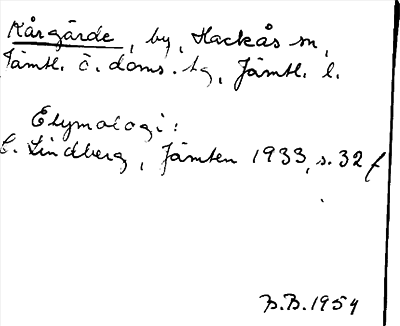 Kårgärde, by, Hackås sn,
Jämtl. ö. doms. hg, Jämtl. l.
Etymologi:
C. Lindberg, Jämten 1933, s. 32 f
B.B. 1954